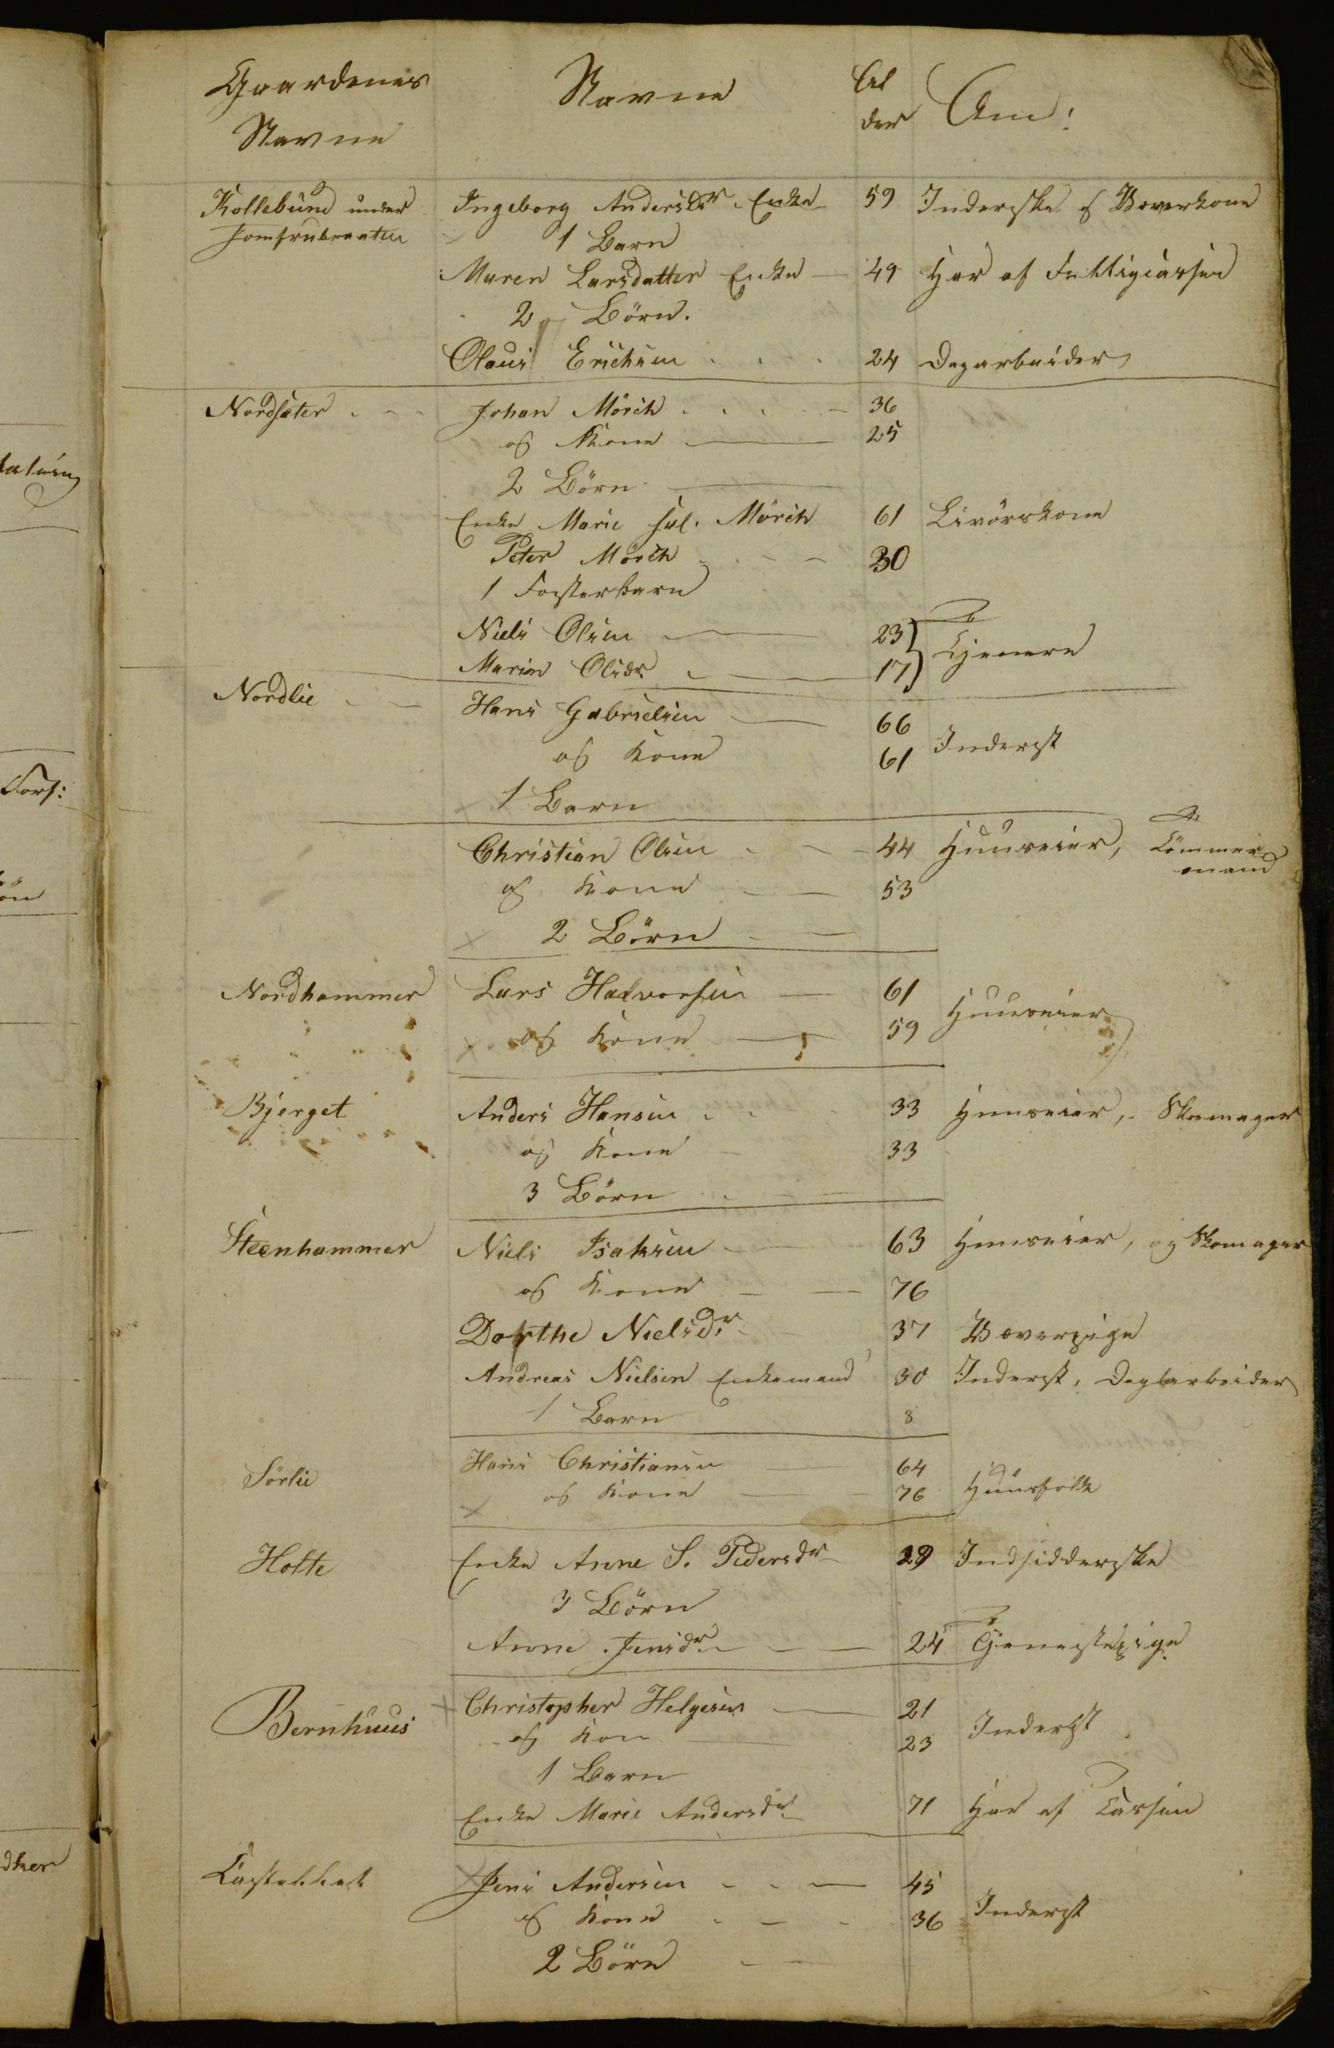 Gaardenes Navne | Navne | Al der | Anm:
Kollebund under | Ingeborg Andersdr. Enke | 59 | Inderske og Væverkone
Jomfrubraaten | 1 Barn
Maren Larsdatter Enke | 49 | Har af Fattigcassen
2 Børn.
Olaus Erichsen | 24 | Dagarbeider
Nordsæter | Johan Mörch | 36
og Kone | 25
2 Børn
Enke Marie sal. Mörch | 61 | Livörskone
Peter Mörch | 30
1 Fosterbarn
Niels Olsen | 23 | Tjenere
Maren Olsdr. | 17
Nordlie | Hans Gabrielsen | 66 | Inderst
og Kone | 61
1 Barn
Christian Olsen | 44 | Huuseier, Tömmer
mand
og Kone | 53
2 Börn
Nordhammer | Lars Halvorsen | 61 | Huuseier
og Kone | 59
Bjerget | Anders Hansen | 33 | Huuseier, Skomager
og Kone | 33
3 Börn
Steenhammer | Niels Isaksen | 63 | Huuseier, og Skomager
og Kone | 76
Dorthe Nielsdr. | 37 | Væverpige
Andreas Nielsen Enkemand | 30 | Inderst, Dagarbeider
1 Barn | 8
Sörlie | Hans Christiansen | 64 | Huusfolk
og Kone | 76
Holte | Enke Anne S. Pedersdr | 29 | Indsidderske
3 Börn
Anne Jensdr. | 24 | Tjenestepige
Bernhuus | Christopher Helgesen | 21 | Inderst
og Kone | 23
1 Barn
Enke Marie Andersdr. | 71 | Har af Cassen
Jens Andersen | 45 | Inderst
og Kone | 36
2 Börn